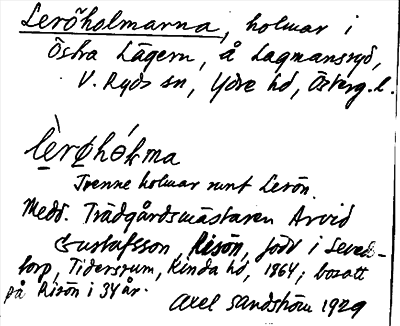 Leröholmarna, holmar i
Östra Lägern, å Lagmansryd,
V. Ryds sn, Ydre hd, Österg. l.
lèrøhólma
Trenne holmar runt Lerön.
Medd. Trädgårdsmästaren Arvid
Gustafsson, Risön, född i Seveds-
torp, Tidersrum, Kinda hd, 1864; bosatt
på Risön i 34 år.
Axel Sandström 1929